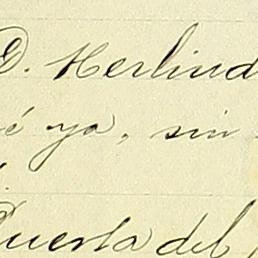 D. Herlind
é ya, sin
Puerta del